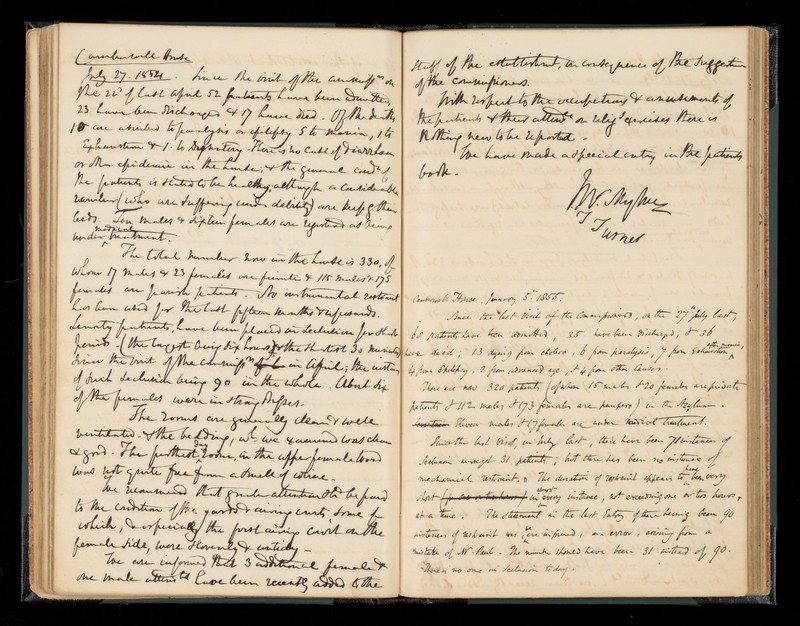 Camberwell House
July 27. 1854. Since the visit of the commissrs on
the 22d of last April 52 patients have been admitted,
23 have been discharged & 17 have died. Of the deaths
10 are ascribed to paralysis or epilepsy 5 to mania, 1 to
Exhaustion & 1 to Dysentery. There is no case of diarrhoea
or other epidemic in the house; & the general condn of
the patients is stated to be healthy; although a considerable
number (who are suffering under debility) are kept in their
beds. Ten males & sixteen females are reported as being
under medical treatment.
The total number now in the house is 330, of
whom 17 males & 23 females are private & 115 males & 175
females are parish patients. No instrumental restraint
has been used for the last fifteen months & upwards.
Seventy patients have been placed in seclusion for short
periods (the longest being six hours & the shortest 30 minutes)
since the visit of the commissrs in April; the instances
of such seclusion being 90 in the whole. About six
of the females were in strong dresses.
The rooms are generally clean & well
ventilated & the bedding, wh we examined was clean
& good. The furthest day room, in the upper female ward
was not quite free from a smell of urine.
We recommend that greater attention shd be paid
to the condition of the yards & airing courts some of
which, & especially the first airing court on the
female side, were slovenly & untidy—
We are informed that 3 additional female &
one male attendts have been recently added to the
staff of the establishment, in consequence of the suggestion
of the commissioners.
With respect to the occupations & amusements of
the patients & their attendce on religs exercises there is
nothing new to be reported—
We have made a special entry in the patients
book—
T Turner
Camberwell House, January 5th 1855.
Since the last visit of the Commissioners, on the 27th July last,
60 patients have been admitted, 35 have been discharged, & 36
have died; 13 dying from cholera, 6 from paralysis, 7 from exhaustion after mania,
4 from Epilepsy, 2 from advanced age, & 4 from other causes.
There are now 320 patients (of whom 15 males & 20 females are private
patients & 112 males & 173 females are paupers) in the Asylum—
Eleven males & 17 females are under medical treatment.
Since the last visit, in July last, there have been 71 instances of
seclusion amongst 31 patients; but there has been no instance of
mechanical restraint. The duration of restraint appears to have been very
short in every instance, not exceeding one or two hours,
at a time. The statement in the last Entry of there having been 90
instances of restraint was we are informed, an error, arising from a
mistake of Mr Paul. The number should have been 31 instead of 90.
There is no one in seclusion today.